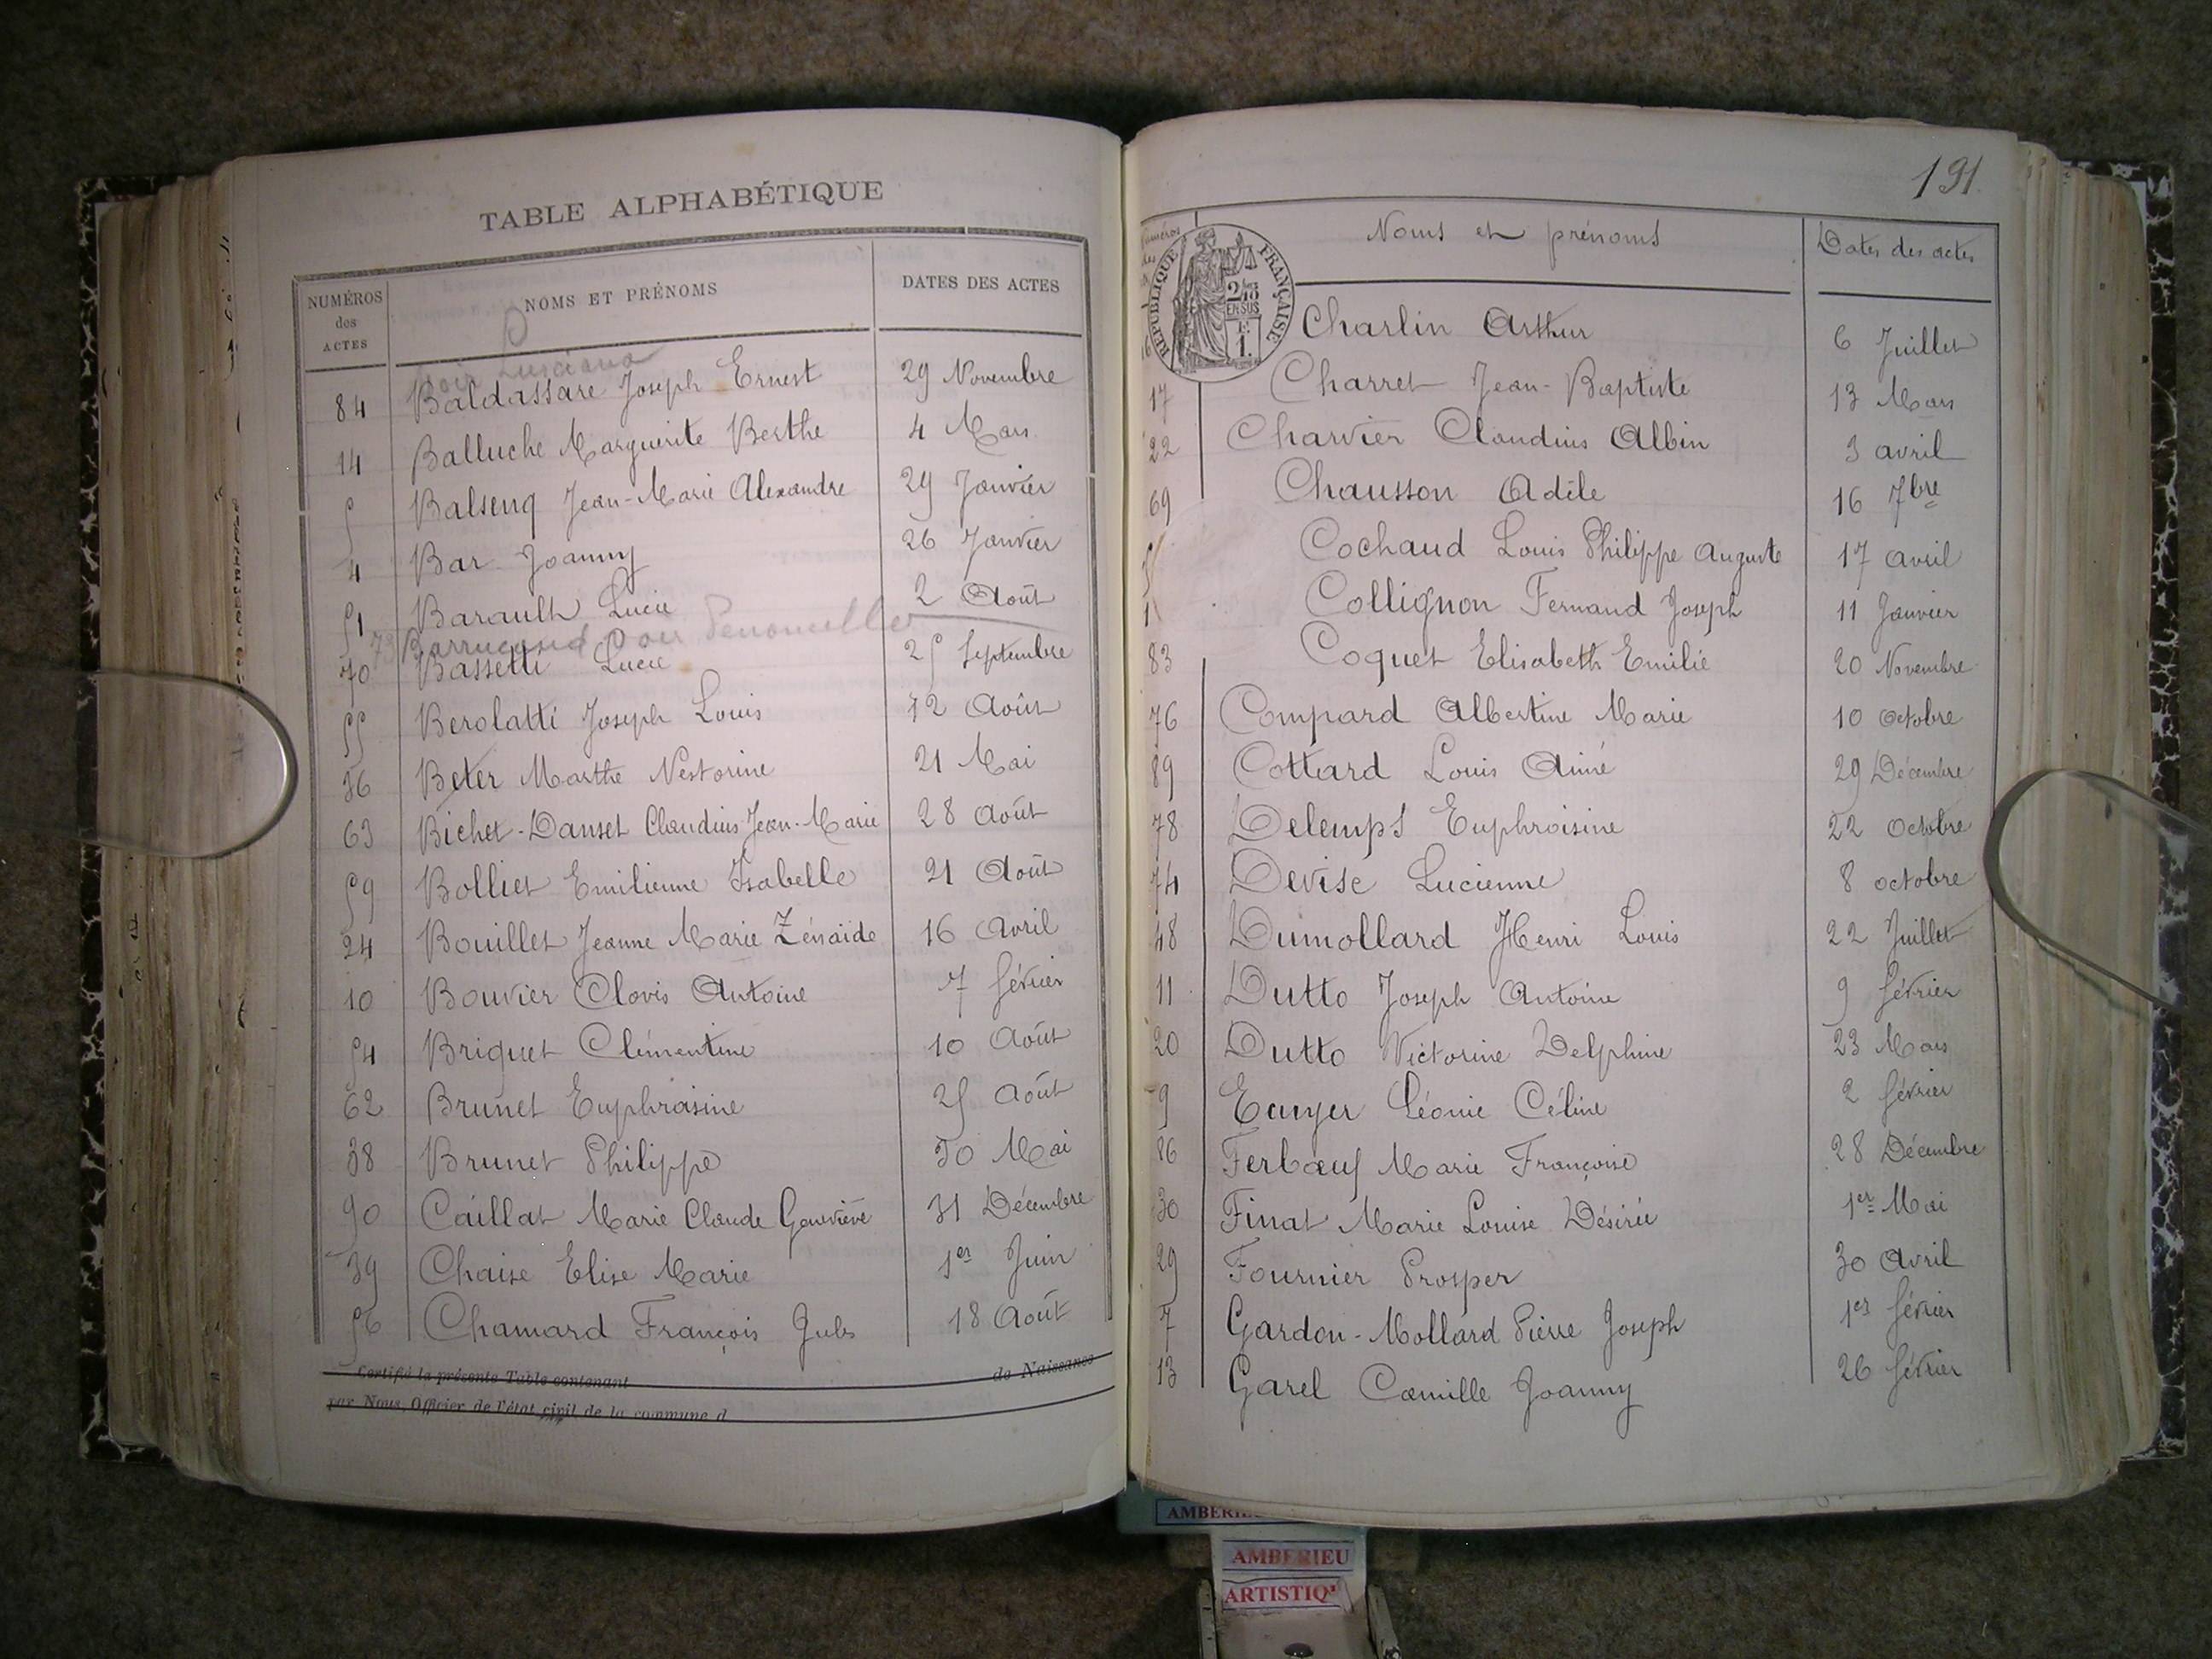 TABLE ALPHABÉTIQUE
NUMÉROS des ACTES NOMS ET PRÉNOMS DATES DES ACTES
voir Lusciana
84 Baldassare Joseph Ernest 29 Novembre
14 Balluche Marguerite Berthe 4 Mars
5 Balsenq Jean-Marie Alexandre 29 Janvier
4 Bar Joanny 26 Janvier
51 Barault Lucie 2 Août
73 Barrucand voir
70 Bassetti Lucie 25 Septembre
55 Berolatti Joseph Louis 12 Août
36 Beter Marthe Nestorine 21 Mai
63 Bichet-Danset Claudius Jean-Marie 28 Août
59 Bolliet Emilienne Isabelle 21 Août
24 Bouillet Jeanne Marie Zénaïde 16 Avril
10 Bouvier Clovis Antoine 7 février
54 Briquet Clémentine 10 Août
62 Brunet Euphraisine 25 Août
38 Brunet Philippe 30 Mai
90 Caillat Marie Claude Geneviève 31 Décembre
39 Chaise Elise Marie 1er Juin
56 Chamard François Jules 18 Août
Certifié la présente Table contenant de Naissance
par Nous, Officier de l'état civil de la commune d
191
Numéros des Noms et prénoms Dates des actes
RÉPUBLIQUE FRANÇAISE
2/10 EN SUS
F. 1.
Charlin Arthur 6 Juillet
17 Charret Jean-Baptiste 13 Mars
22 Charvier Claudius Albin 3 avril
69 Chausson Adèle 16 7bre
Cochaud Louis Philippe Auguste 17 avril
1 Collignon Fernand Joseph 11 Janvier
83 Coquet Elisabeth Emilie 20 Novembre
76 Compard Albertine Marie 10 octobre
89 Cottard Louis Aimé 29 Décembre
78 Delemps Euphroisine 22 octobre
74 Devise Lucienne 8 octobre
48 Dumollard Henri Louis 22 Juillet
11 Dutto Joseph Antoine 9 février
20 Dutto Victorine Delphine 23 Mars
9 Ecuyer Léonie Céline 2 février
86 Ferbœuf Marie Françoise 28 Décembre
30 Finat Marie Louise Désirée 1er Mai
29 Fournier Prosper 30 Avril
7 Gardon-Mollard Pierre Joseph 1er février
13 Garel Camille Joanny 26 février
AMBERIEU
ARTISTIQ